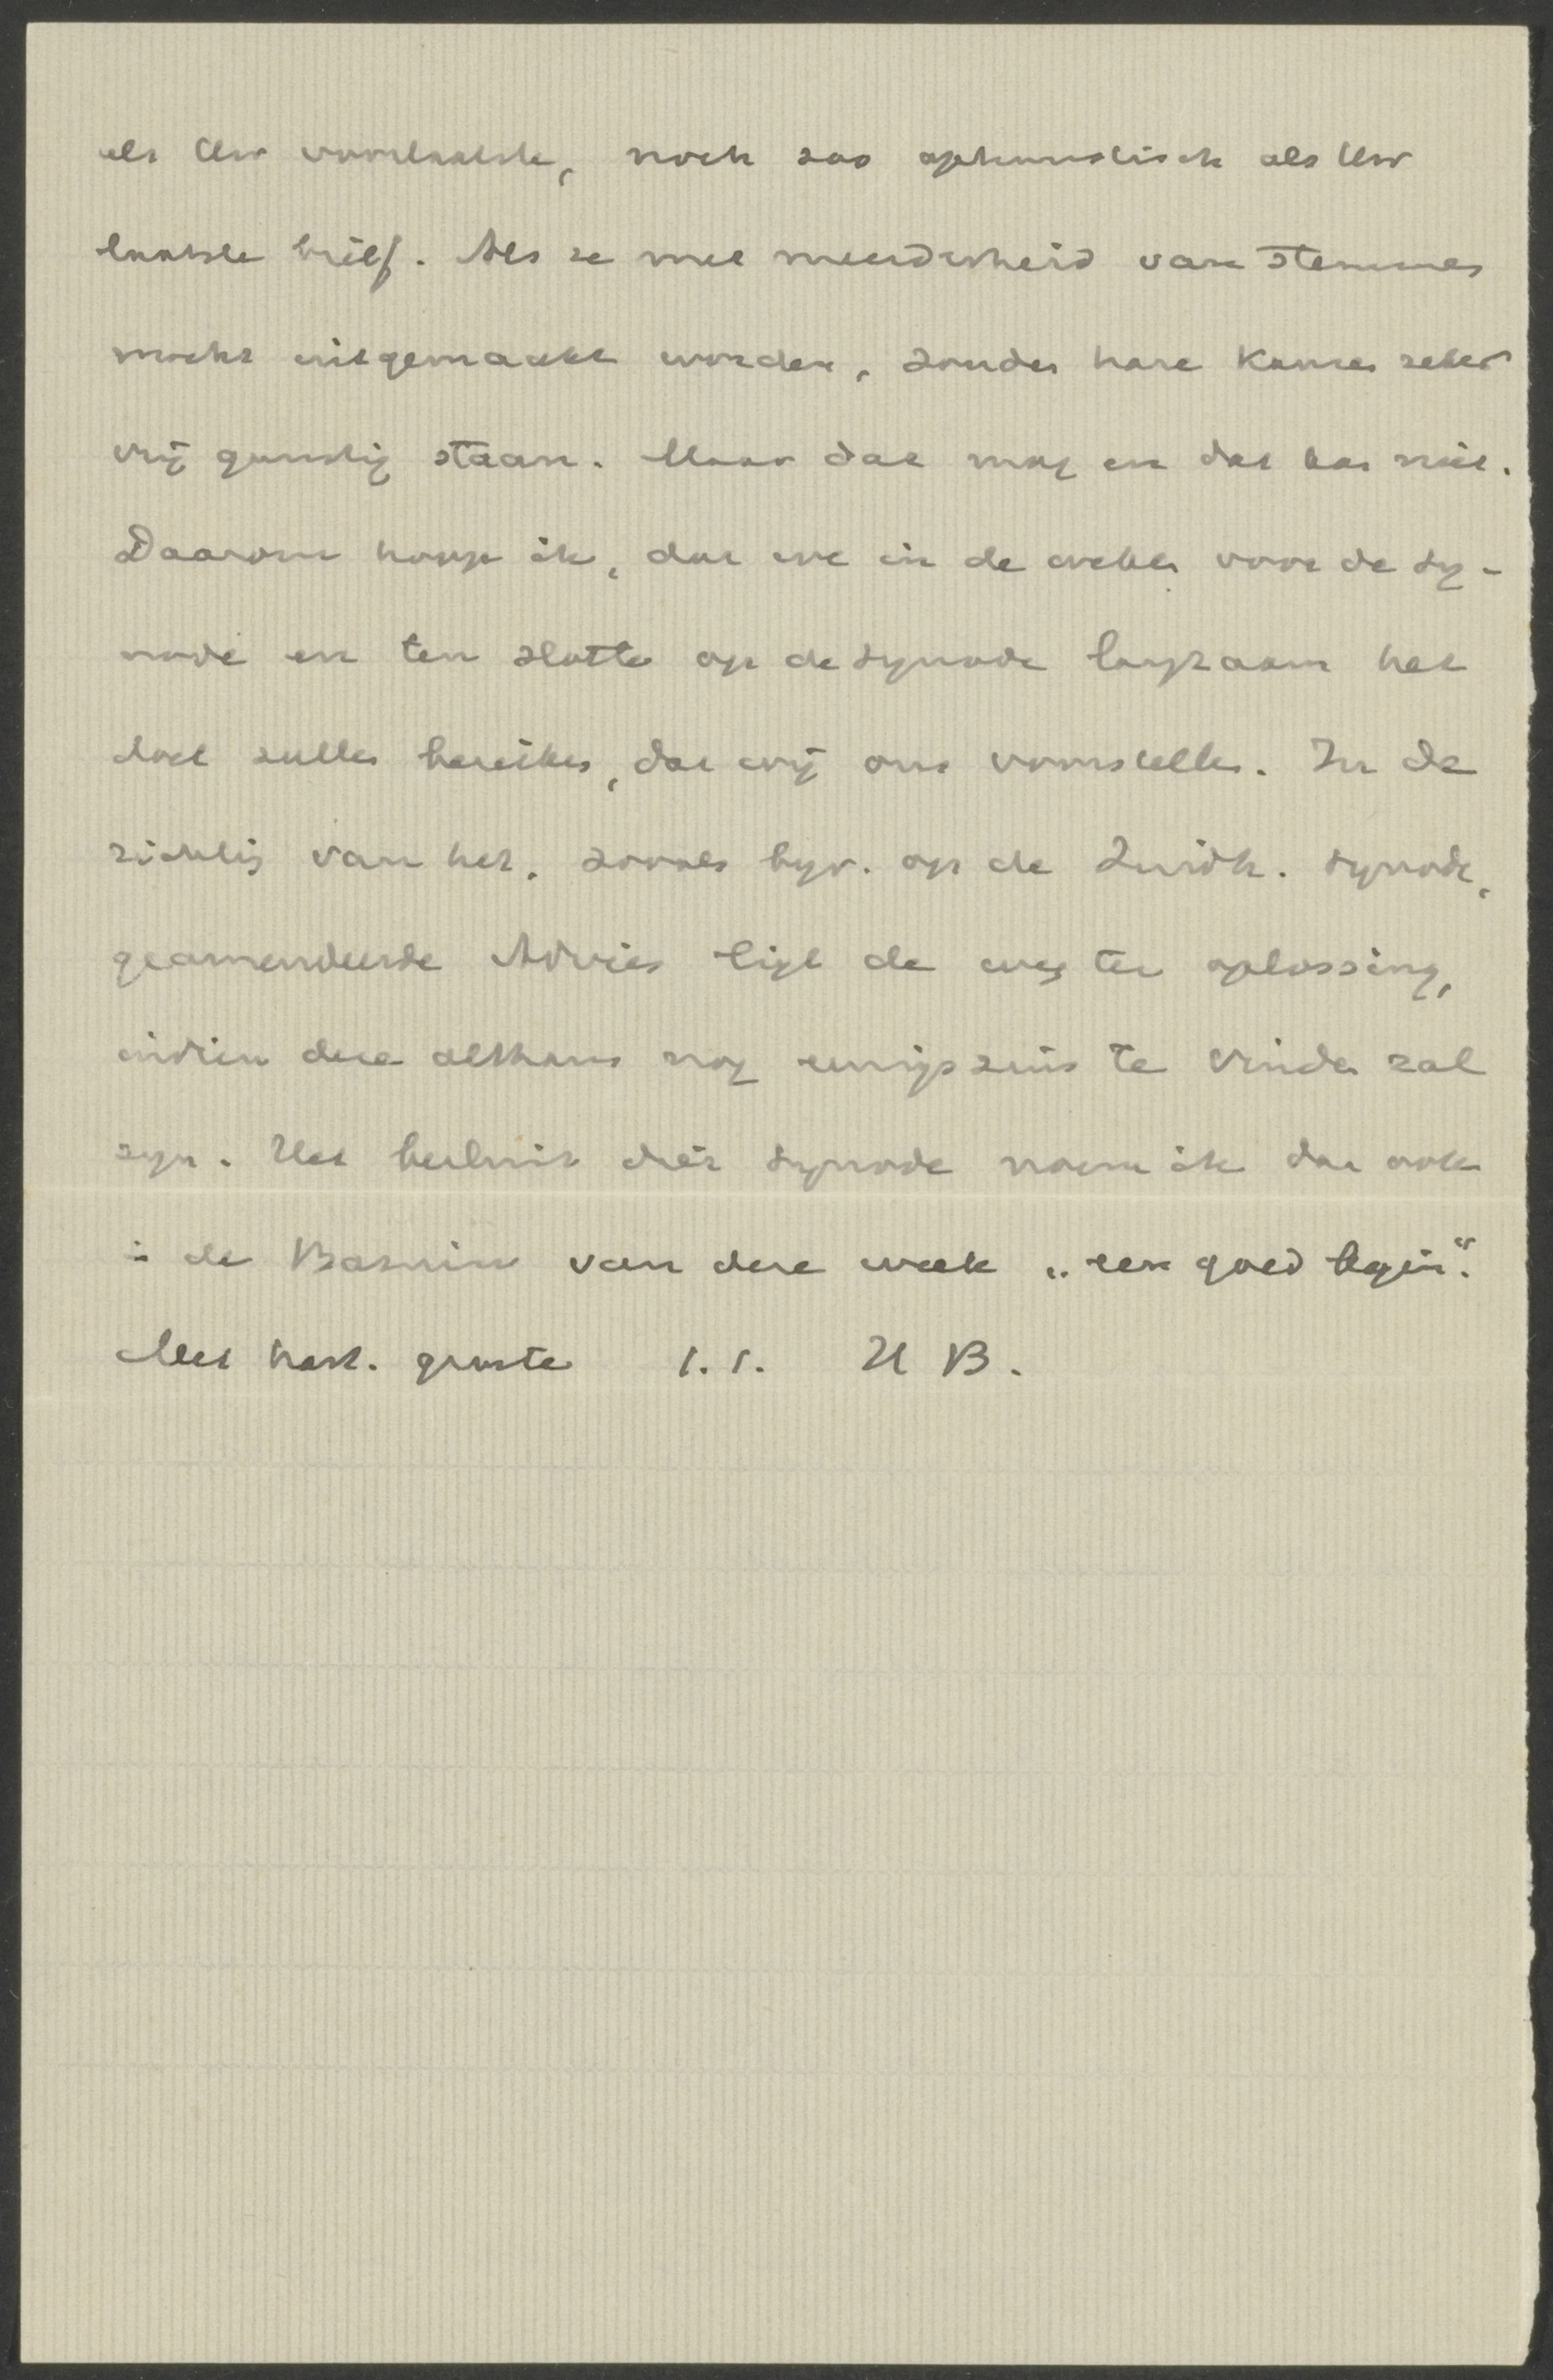 als Uw voorlaatste, noch zoo optimistisch als Uw
laatste brief. Als ze met meerderheid van stemmen
mocht uitgemaakt worden, zouden hare kansen zeker
vrij gunstig staan. Maar dat mag en dat kan niet.
Daarom hoop ik, dat we in de weken voor de sy-
node en ten slotte op de synode langzaam het
doel zullen bereiken, dat wij ons voorstellen. In de
richting van het, zooals byv. op de Zuidh. synode,
geamendeerde Advies ligt de weg ter oplossing,
indien deze althans nog eenigszins te vinden zal
zyn. Het besluit dier synode noem ik dan ook
in de Bazuin van deze week „een goed begin".
Met hart. groete t.t. H B.